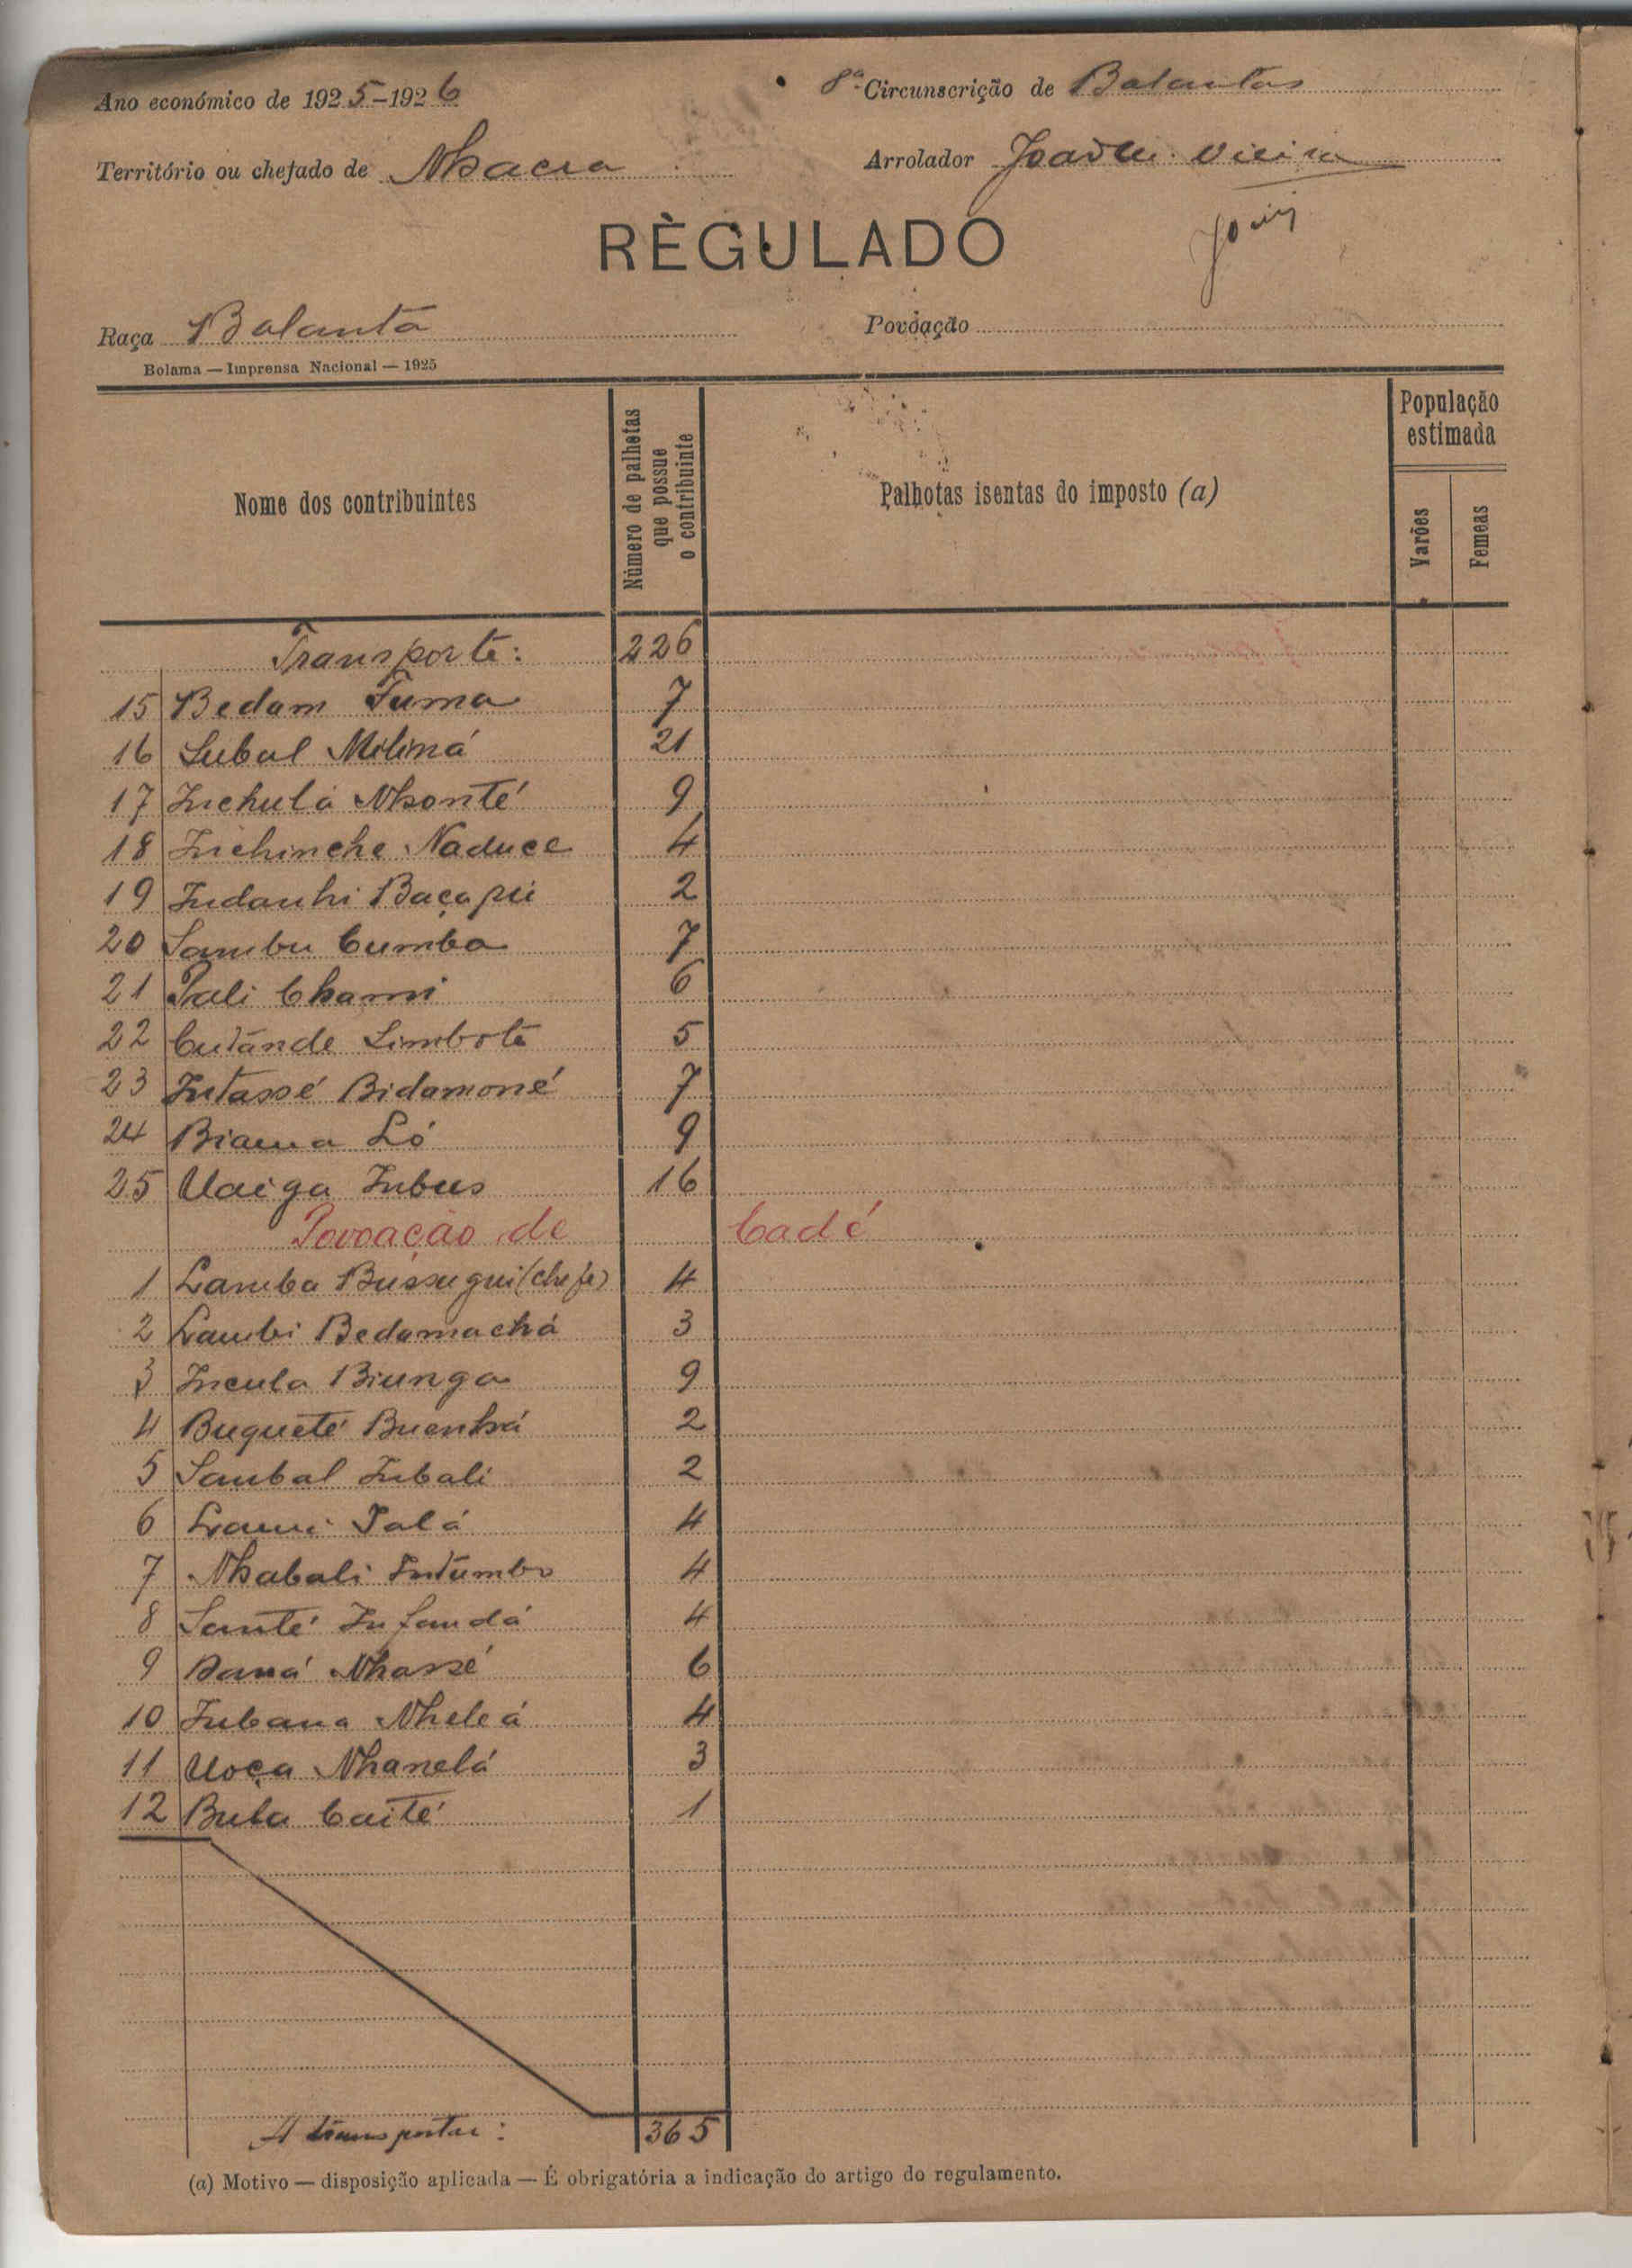 Ano económico de 1925-1926
8ª Circunscrição de Balantas
Território ou chefado de Nhacra
Arrolador Joaqm. Vieira
RÈGULADO
Raça Balanta
Povoação
Bolama — Imprensa Nacional — 1925
Nome dos contribuintes
Número de palhetas que possue o contribuinte
Palhotas isentas do imposto (a)
População estimada
Varões
Femeas
Transporte: 226
15 Bedam Tuma 7
16 Subal Miliná 21
17 Inchulá Nhonté 9
18 Inchinche Naduce 4
19 Indanhi Baçapú 2
20 Sambu Cumba 7
21 Pali Chami 6
22 Cutánde Limbote 5
23 Intassé Bidamoné 7
24 Biama Ló 9
25 Uaiga Inbus 16
Povoação de Cadé
1 Lamba Bussugui (chefe) 4
2 Lambi Bedamachá 3
3 Incula Biunga 9
4 Buqueté Buenhá 2
5 Sambal Inbali 2
6 Lami Talá 4
7 Nhabali Intumbo 4
8 Santé Infandá 4
9 Damá Nhassé 6
10 Inbana Nheleá 4
11 Uoça Nhanelá 3
12 Bula Caité 1
A transportar: 365
(a) Motivo — disposição aplicada — É obrigatória a indicação do artigo do regulamento.